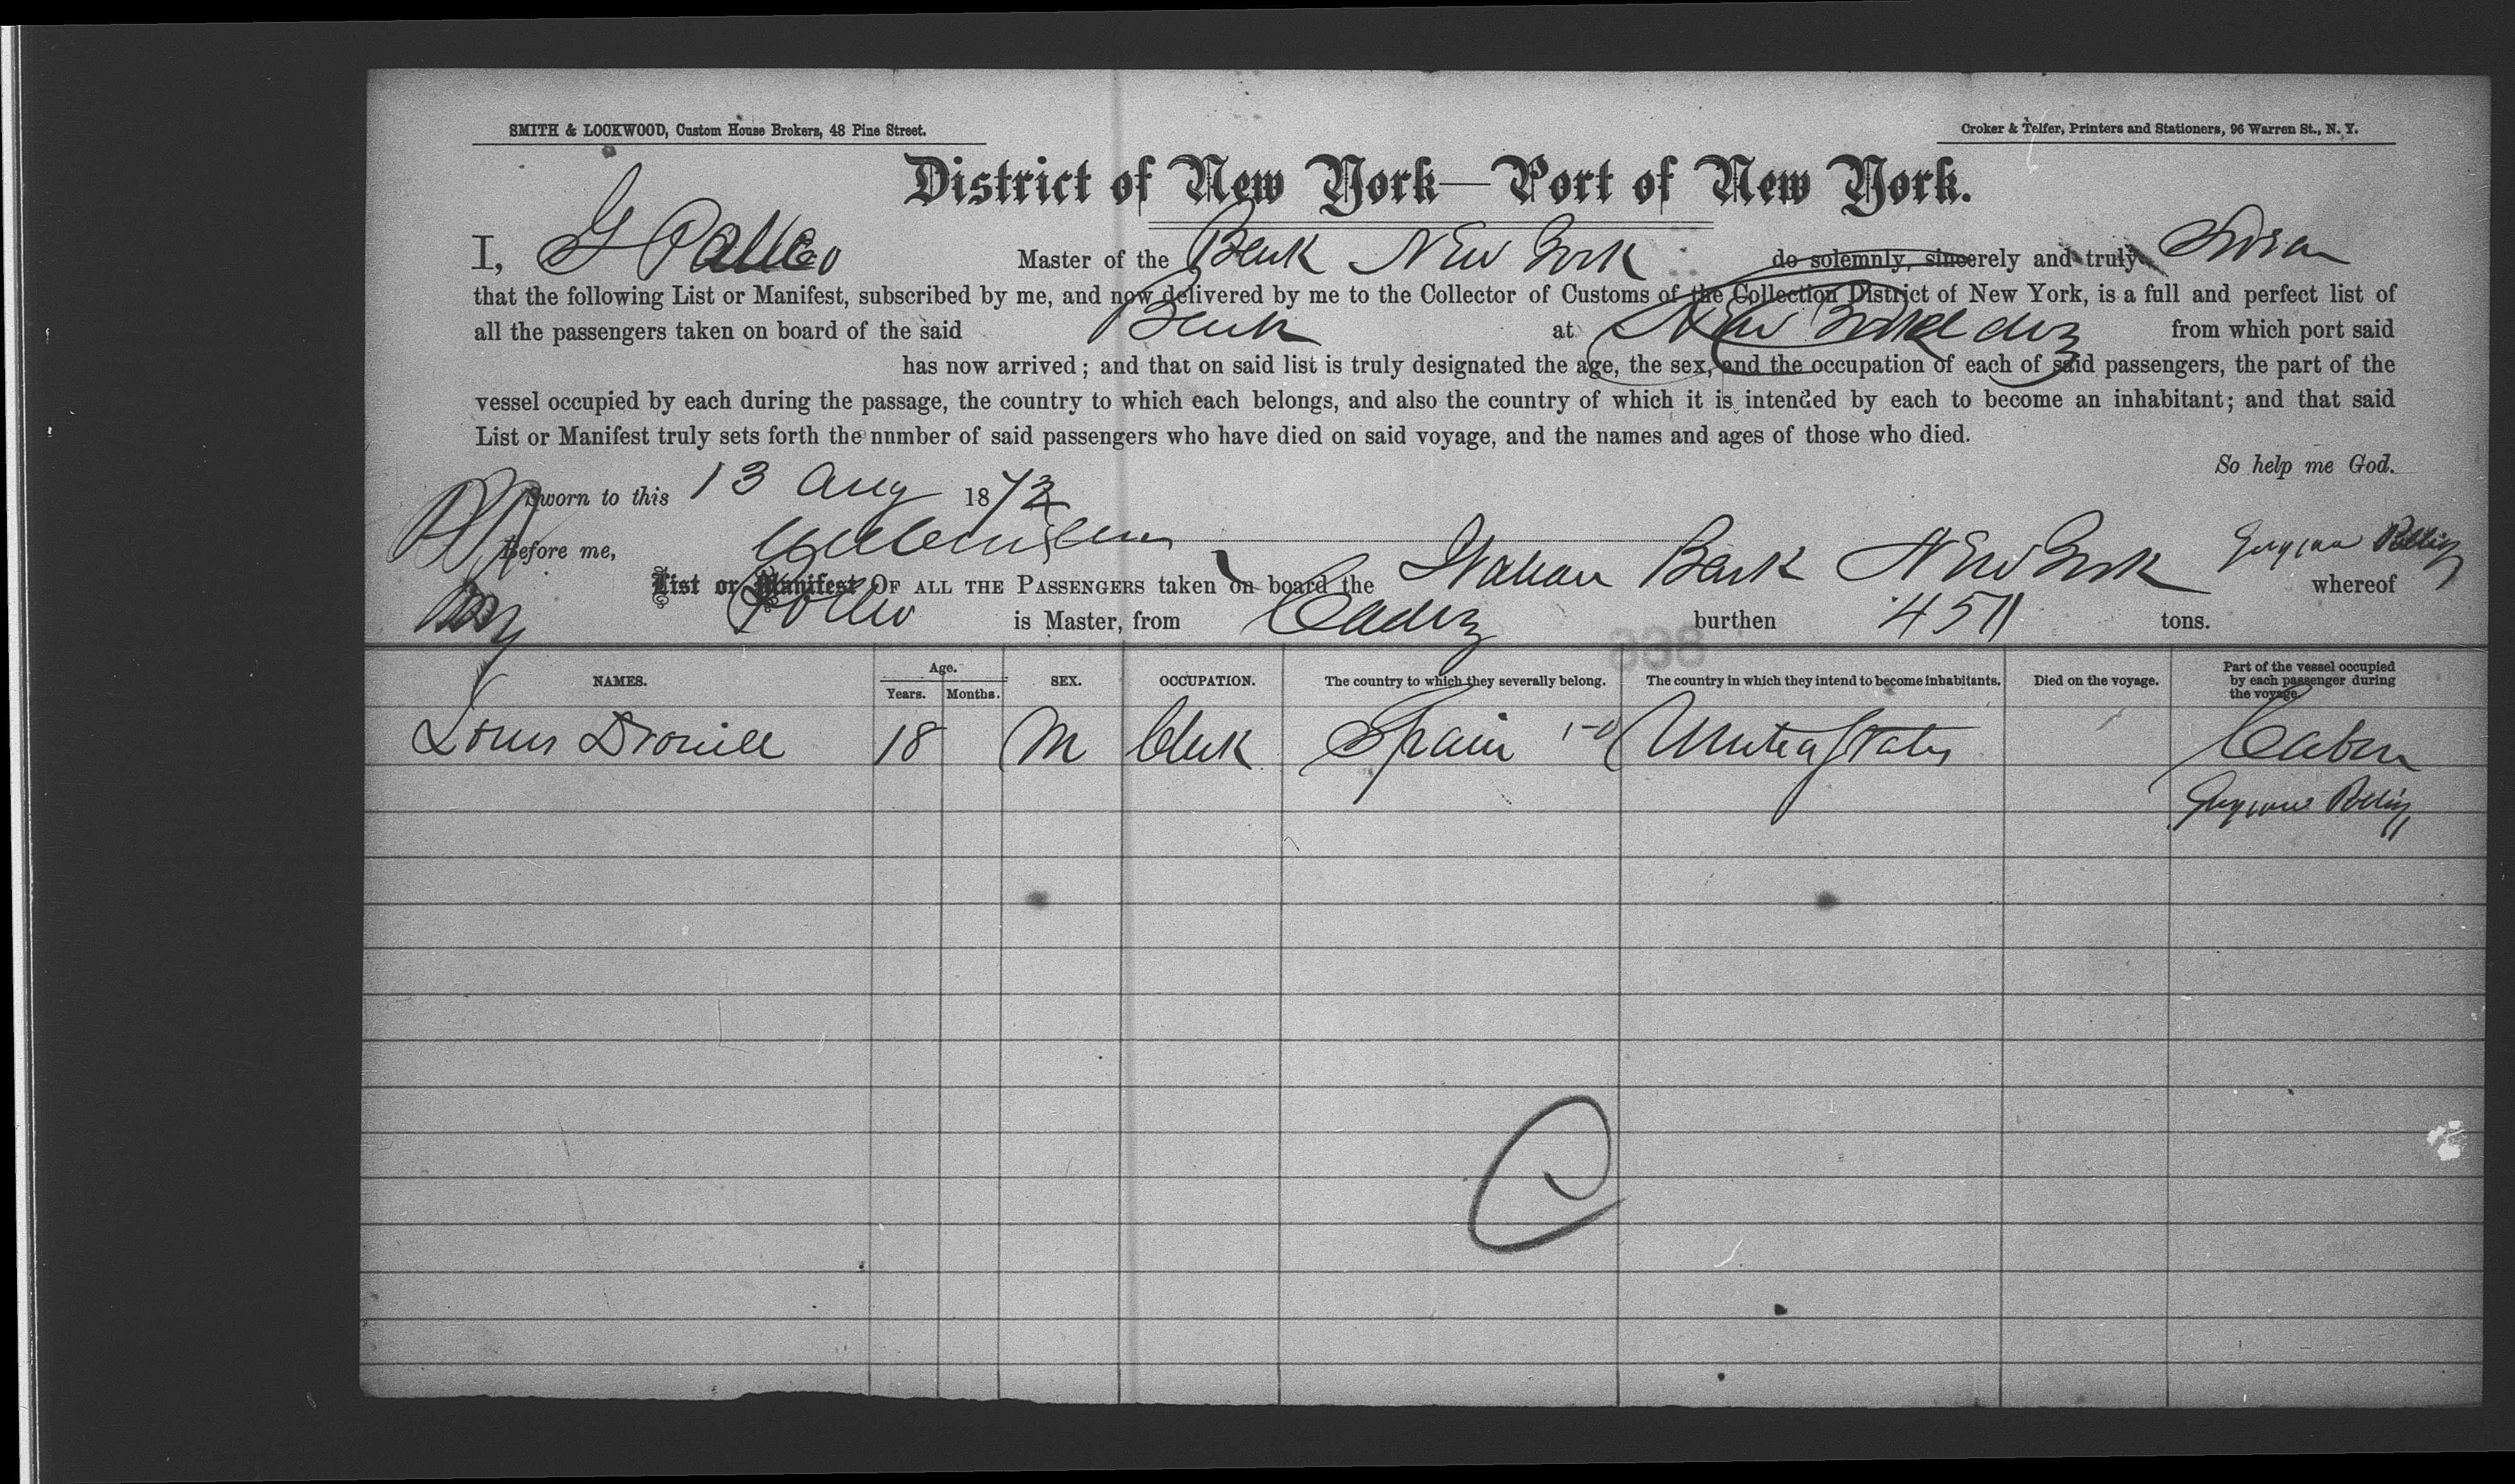 SMITH & LOCKWOOD, Custom House Brokers, 48 Pine Street.
Croker & Telfer, Printers and Stationers, 96 Warren St., N. Y.
District of New York—Port of New York.
I, G Master of the Bark New York do solemnly, sincerely and truly
that the following List or Manifest, subscribed by me, and now delivered by me to the Collector of Customs of the Collection District of New York, is a full and perfect list of
all the passengers taken on board of the said Bark at Cadiz from which port said
has now arrived; and that on said list is truly designated the age, the sex, and the occupation of each of said passengers, the part of the
vessel occupied by each during the passage, the country to which each belongs, and also the country of which it is intended by each to become an inhabitant; and that said
List or Manifest truly sets forth the number of said passengers who have died on said voyage, and the names and ages of those who died.
So help me God.
Sworn to this 13 Aug 1872
Before me,
List or Manifest OF ALL THE PASSENGERS taken on board the Italian Bark New York whereof
is Master, from Cadiz burthen 4511 tons.
NAMES. Age. Years. Months. SEX. OCCUPATION. The country to which they severally belong. The country in which they intend to become inhabitants. Died on the voyage. Part of the vessel occupied by each passenger during the voyage.
Louis 18 M Clerk Spain United States Cabin
C